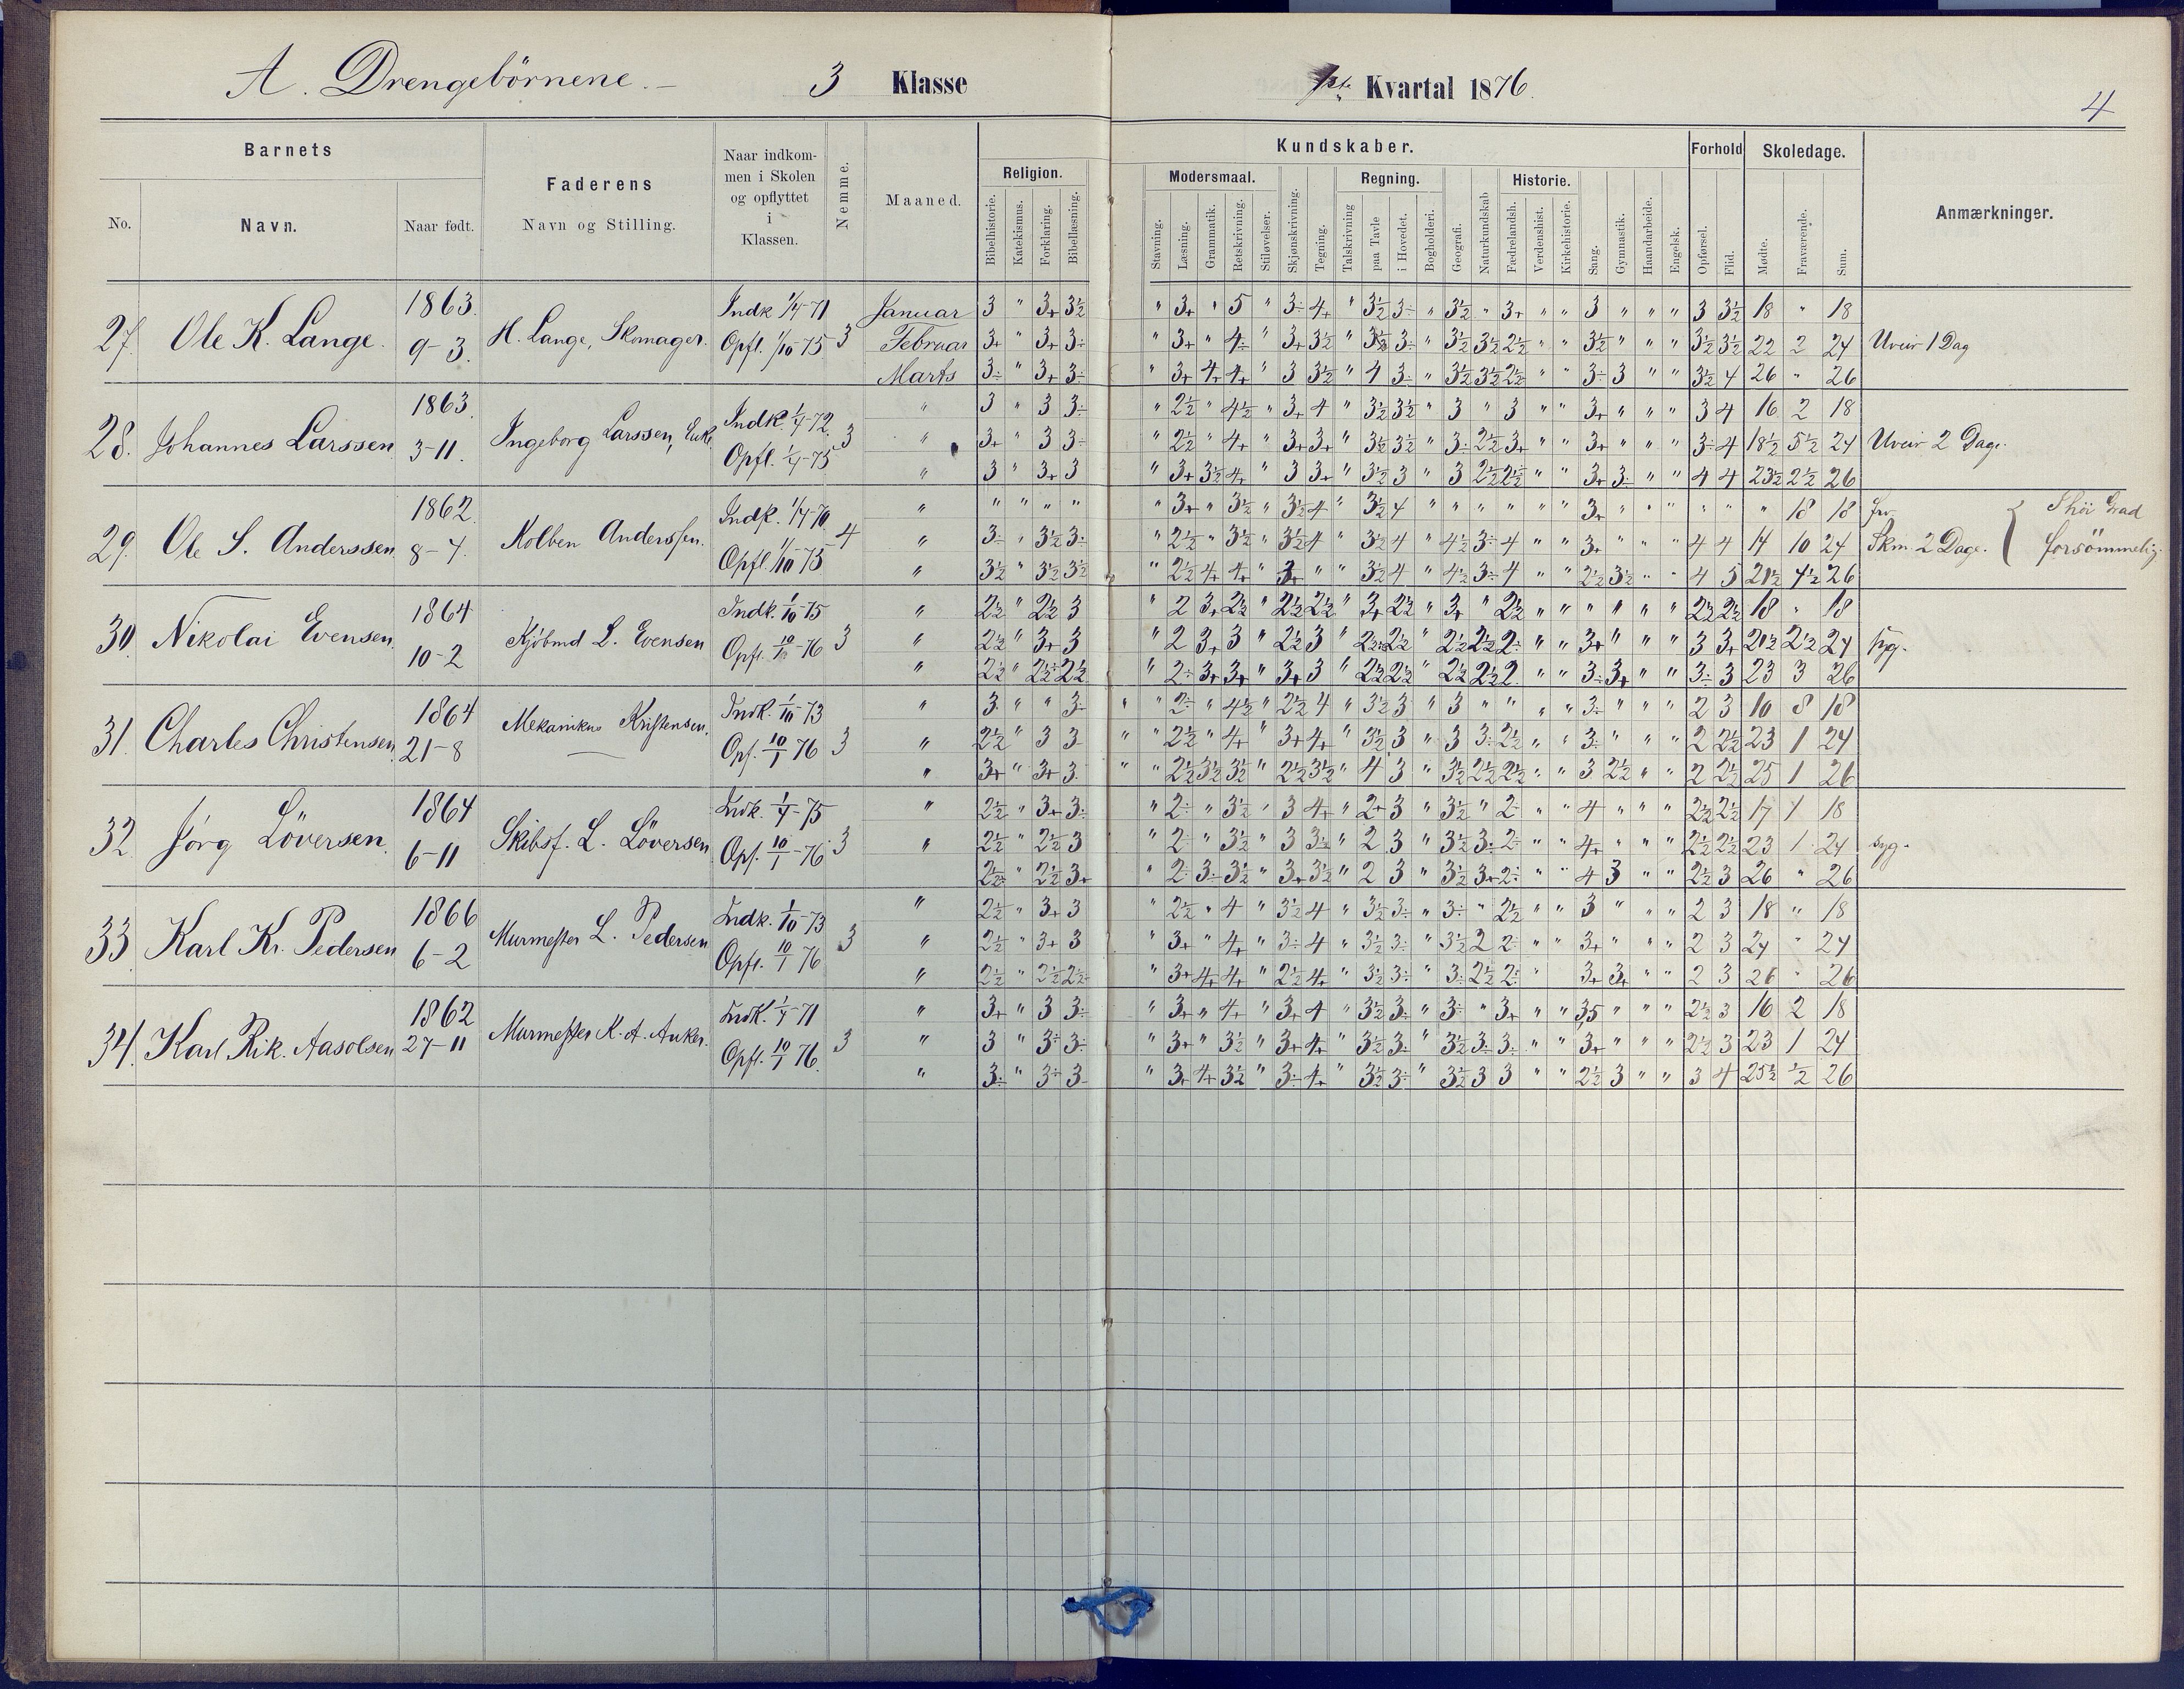 A. Drengebörnene. – 3 Klasse
1ste Kvartal 1876.
4
Barnets
No.
Navn.
Naar født.
Faderens
Navn og Stilling.
Naar indkom-
men i Skolen
og opflyttet
i
Klassen.
Nemme.
Maaned.
Kundskaber.
Religion.
Bibelhistorie.
Katekismus.
Forklaring.
Bibellæsning.
Modersmaal.
Stavning.
Læsning.
Grammatik.
Retskrivning.
Stiløvelser.
Skjønskrivning.
Tegning.
Regning.
Talskrivning
paa Tavle
i Hovedet.
Bogholderi.
Geografi.
Naturkundskab
Historie.
Fædrelandsh.
Verdenshist.
Kirkehistorie.
Sang.
Gymnastik.
Haandarbeide.
Engelsk.
Forhold
Opførsel.
Flid.
Skoledage.
Mødte.
Fraværende.
Sum.
Anmærkninger.
27. Ole K. Lange. 1863. 9-3. H. Lange, Skomager. Indk 1/4-71 Opfl. 1/10-75 3
Januar 3 " 3+ 3½ " 3+ " 5 " 3÷ 4+ " 3½ 3÷ " 3½ " 3+ " " 3 " " " 3 3½ 18 " 18
Februar 3+ " 3+ 3÷ 22 2 24 Uveir 1 Dag
Marts 3÷ " 3+ 3÷ " 3+ 4+ 4+ " 3 3½ " 4 3÷ " 3½ 3½ 2½ " " 3÷ 3 " " 3½ 4 26 " 26
28. Johannes Larssen 1863. 3-11. Ingeborg Larssen, Enke Indk. 1/4-72. Opfl. 1/4-75 3
" 3 " 3 3÷ " 2½ " 4½ " 3+ 4 " 3½ 3½ " 3 " 3 " " 3+ " " " 3 4 16 2 18
" 3+ " 3 3÷ " 2½ " 4+ " 3+ 3+ " 3½ 3½ " 3÷ 2½ 3+ " " 3+ " " " 3÷ 4 18½ 5½ 24 Uveir 2 Dage.
" 3 " 3+ 3 " 3+ 3½ 4+ " 3 3+ " 3½ 3 " 3 2½ 2½ " " 3+ 3÷ " " 4 4 23½ 2½ 26
29. Ole S. Anderssen. 1862. 8-4. Kolben Anderssen. Indk. 1/4-70 Opfl. 1/10-75 4
" " " " " " 3+ " 3½ " 3½ 4 " 3½ 4 " " " " " " 3+ " " " " " " 18 18 frv.
" 3÷ " 3½ 3÷ " 2½ " 3½ " 3½ 4 " 3½ 4 " 4½ 3÷ 4 " " 3+ " " " 4 4 14 10 24 Skm. 2 Dage. { I höi Grad
forsömmelig.
" 3½ " 3½ 3½ " 2½ 4+ 4+ " 3+ " " 3½ 4 " 4½ 3÷ 4 " " 2½ 3½ " " 4 5 21½ 4½ 26
30. Nikolai Evensen. 1864 10-2 Kjöbmd L. Evensen Indk. 1/10-75 Opfl. 10/1-76 3
" 2½ " 2½ 3 " 2 3+ 2½ " 2½ 2½ " 3+ 2½ " 3+ " 2½ " " " " " " 2½ 2½ 18 " 18
" 2½ " 3+ 3 " 2 3+ 3 " 2½ 3 " 2½ 2½ " 2½ 2½ 2÷ " " 3+ " " " 3 3+ 21½ 2½ 24 syg.
" 2½ " 2½ 2½ " 2÷ 3+ 3+ " 3+ 3 " 2½ 2½ " 2½ 2½ 2 " " 3÷ 3+ " " 3÷ 3 23 3 26
31. Charles Christensen. 1864 21-8 Mekanikus Kristensen. Indk. 1/10-73 Opf. 10/1 76 3
" 3 " " 3÷ " 2÷ " 4½ " 2½ 4 " 3½ 3 " 3 " " " " 3÷ " " " 2 3 10 8 18
" 2½ " 3 3 " 2½ " 4+ " 3+ 4+ " 3½ 3 " 3 3÷ 2½ " " 3÷ " " " 2 2½ 23 1 24
" 3+ " 3+ 3 " 2½ 3½ 3½ " 2½ 3½ " 4 3 " 3½ 2½ 2½ " " 3 2½ " " 2 2½ 25 1 26
32. Jörg Löversen. 1864 6-11 Skibsf. L. Löversen Indk. 1/4-75 Opf. 10/1-76 3
" 2½ " 3+ 3÷ " 2÷ " 3½ " 3 4+ " 2+ 3 " 3½ " 2÷ " " 4 " " " 2½ 2½ 17 1 18
" 2½ " 2½ 3 " 2 " 3½ " 3 3½ " 2 3 " 3½ 3÷ 2÷ " " 4+ " " " 2½ 2½ 23 1 24 syg.
2½ " 2½ 3+ " 2 3÷ 3½ " 3+ 3½ " 2 3 " 3½ 3+ 2÷ " " 4 3 " " 2½ 3 26 " 26
33 Karl Kr. Pedersen 1866 6-2 Murmester L. Pedersen Indk. 1/10-73 Opfl. 10/1 76 3
" 2½ " 3+ 3 " 2½ " 4 " 3½ 4 " 3½ 3÷ " 3÷ " 2½ " " 3 " " " 2 3 18 " 18
" 2½ " 3+ 3 " 3+ " 4+ " 3÷ 4 " 3½ 3÷ " 3½ 2 2÷ " " 3+ " " " 2 3 24 " 24
" 2½ " 2½ 2½ " 3+ 4+ 4+ " 2½ 4+ " 3½ 3÷ " 3÷ 2½ 2÷ " 3+ 3+ " " 2 3 26 " 26
34. Karl Rik. Aasolsen 1862 27-11 Murmester K. A. Anker. Indk. 1/4-71 Opfl. 10/1 76. 3
" 3+ " 3 3÷ " 3+ " 4+ " 3+ 4 " 3½ 3÷ " 3÷ " 3+ " " 3,5 " " " 2½ 3 16 2 18
" 3 " 3÷ 3÷ " 3+ " 3½ " 3+ 4+ " 3½ 3÷ " 3½ 3÷ 3÷ " " 3+ " " " 2½ 3 23 1 24
" 3÷ " 3÷ 3 " 3+ 4+ 3½ " 3÷ 4+ " 3½ 3÷ " 3½ 3 3 " " 2½ 3 " " 3 4 25½ ½ 26